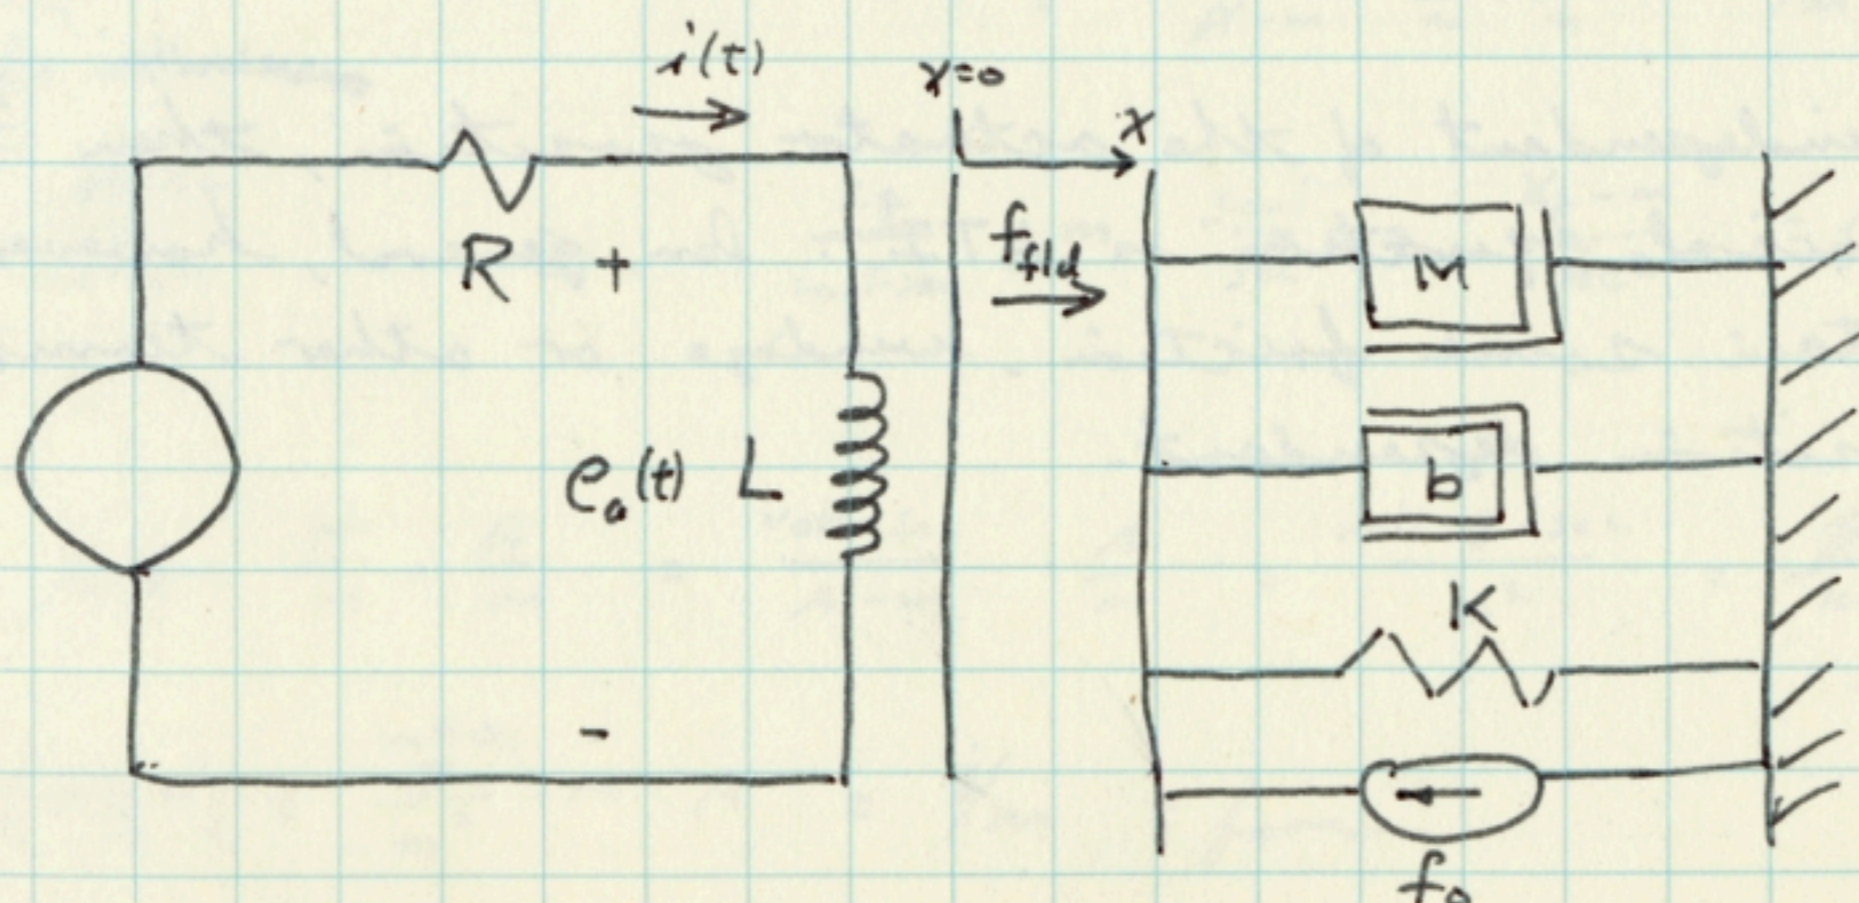 i(t)
x=0
x
R +
f_fld
M
e_a(t) L
b
K
-
f_o